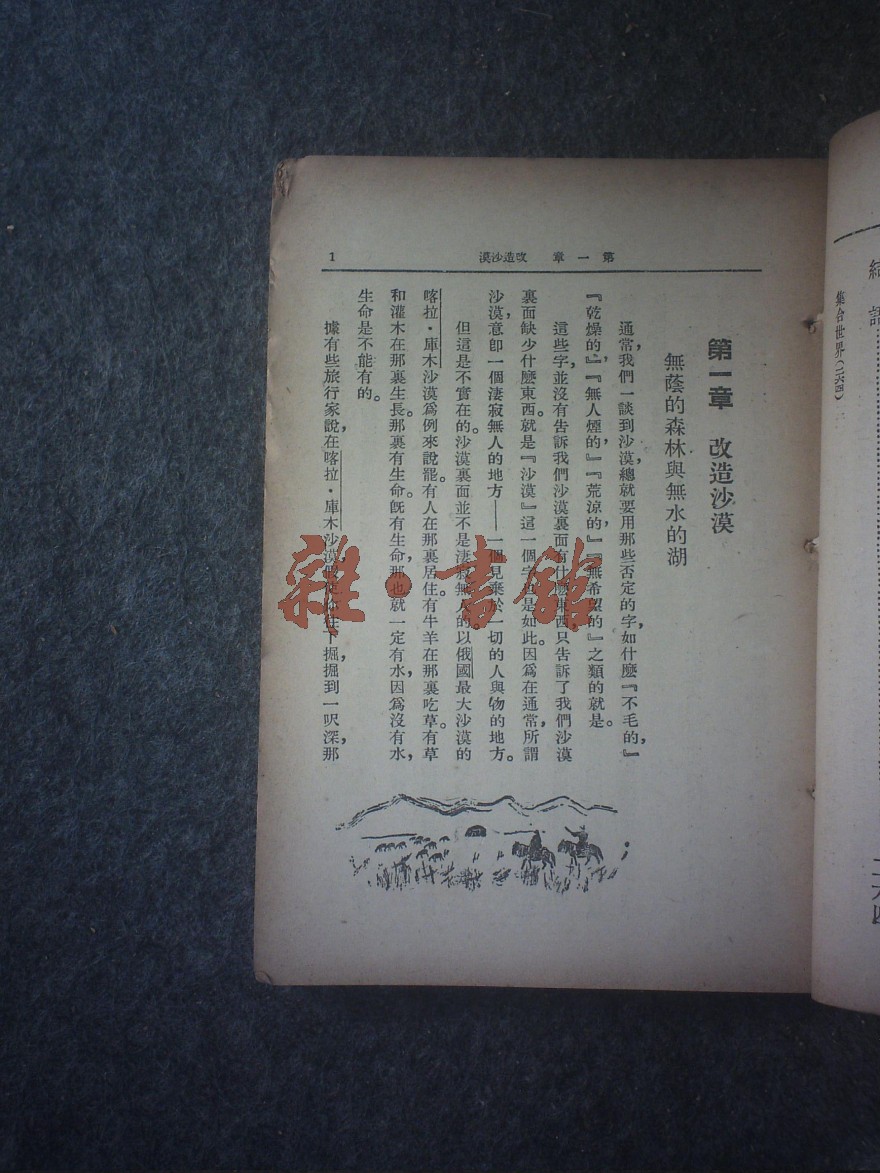 結語
集合世界(二六四)
二六四
第一章 改造沙漠 1
第一章 改造沙漠
無蔭的森林與無水的湖
通常,我們一談到沙漠,總就要用那些否定的字如什麼『不毛的,』
『乾燥的,』『無人煙的,』『荒涼的,』『無希望的』之類的就是。
這些字,並沒有告訴我們沙漠裏面有什麼東西,只告訴了我們沙漠
裏面缺少什麼東西。就是『沙漠』這一個字也是如此。因爲在通常,所謂
沙漠,意卽一個淒寂無人的地方——一個見棄於一切的人與物的地方。
但這是不實在的。沙漠裏面並不是淒寂無人的。以俄國最大沙漠的
喀拉·庫木沙漠爲例來說罷。有人在那裏居住。有牛羊在那裏吃草。有草
和灌木在那裏生長。那裏有生命。旣有生命,那也就一定有水,因爲沒有水,
生命是不能有的。
據有些旅行家說,在喀拉·庫木沙漠,假使你往下掘,掘到一呎深,那
雜·書館